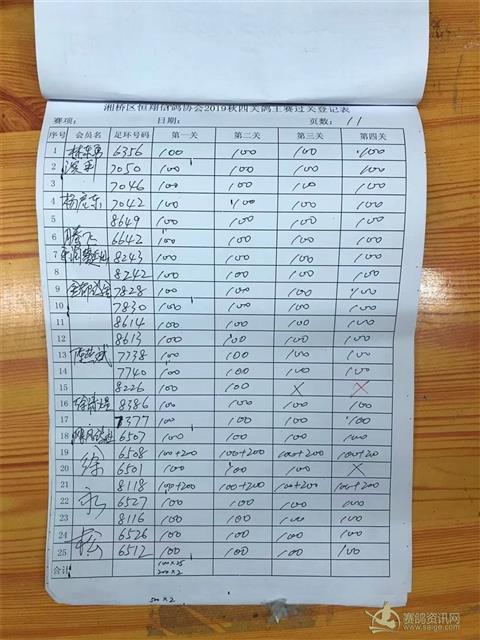 湘桥区恒翔信鸽协会2019秋四关鸽王赛过关登记表
赛项: 日期: 页数: 11
序号 会员名 足环号码 第一关 第二关 第三关 第四关
1 6356 100 100 100 100
2 7050 100 100 100 100
3 7046 100 100 100 100
4 7042 100 100 100 100
5 8649 100 100 100 100
6 腾飞 6642 100 100 100 100
7 8243 100 100 100 100
8 8242 100 100 100 100
9 7828 100 100 100 100
10 7830 100 100 100 100
11 8614 100 100 100 100
12 8613 100 100 100 100
13 7738 100 100 100 100
14 7740 100 100 100 100
15 8226 100 100 X X
16 8386 100 100 100 100
17 7377 100 100 100 100
18 6507 100 100 100 100
19 徐 6508 100+200 100+200 100+200 100+200
20 6501 100 100 100 X
21 8118 100+200 100+200 100+200 100+200
22 永 6527 100 100 100 100
23 8116 100 100 100 100
24 松 6526 100 100 100 100
25 6512 100 100 100 100
合计 100×25
200×2
500×2
赛鸽资讯网
www.saige.com